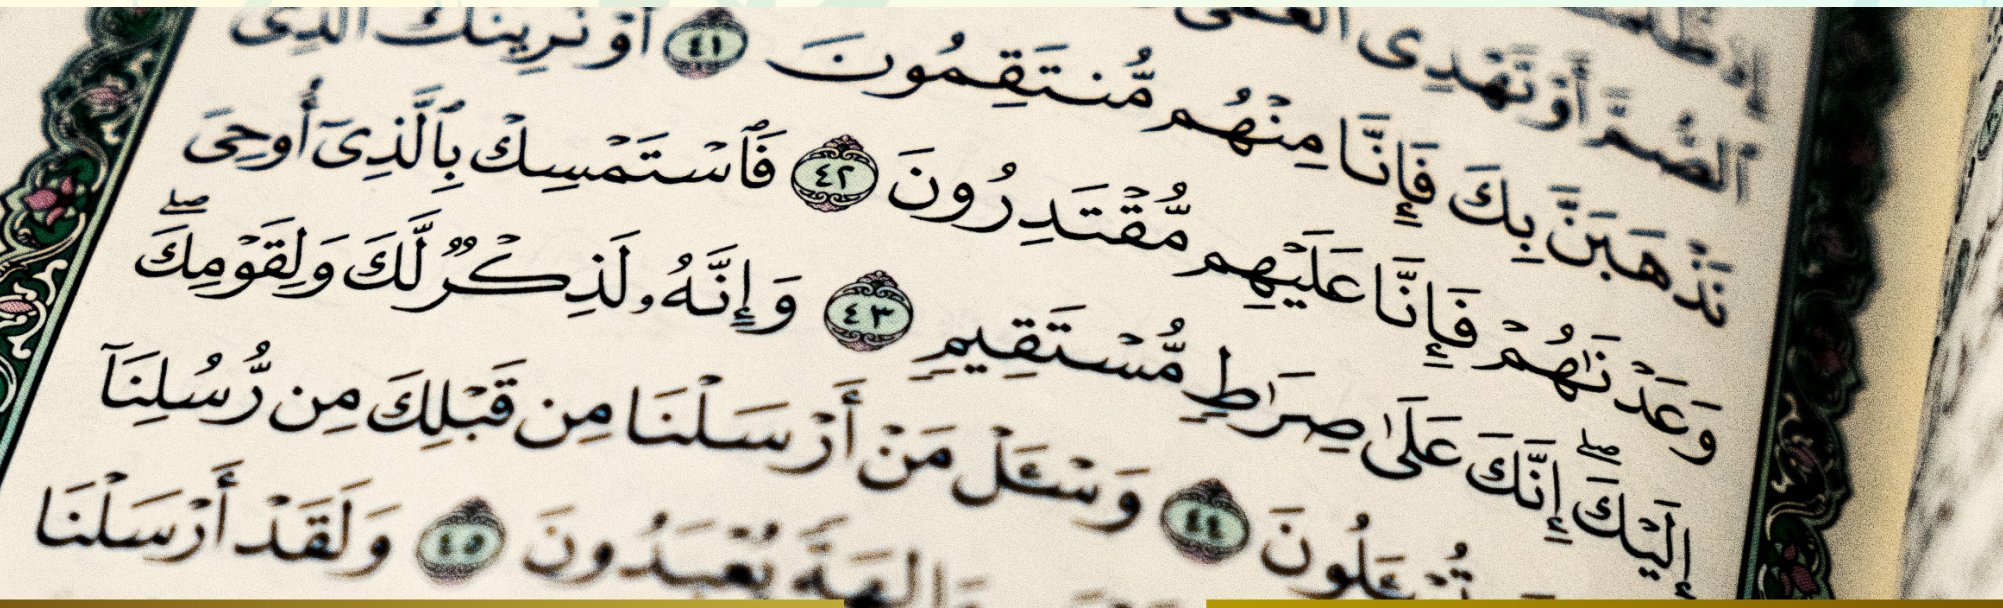 ٱلصُّمَّ أَوْ تَهْدِى ٱلْعُمْىَ
نَذْهَبَنَّ بِكَ فَإِنَّا مِنْهُم مُّنتَقِمُونَ ٤١ أَوْ نُرِيَنَّكَ ٱلَّذِى
وَعَدْنَٰهُمْ فَإِنَّا عَلَيْهِم مُّقْتَدِرُونَ ٤٢ فَٱسْتَمْسِكْ بِٱلَّذِىٓ أُوحِىَ
إِلَيْكَ ۖ إِنَّكَ عَلَىٰ صِرَٰطٍ مُّسْتَقِيمٍ ٤٣ وَإِنَّهُۥ لَذِكْرٌ لَّكَ وَلِقَوْمِكَ ۖ
تُسْـَٔلُونَ ٤٤ وَسْـَٔلْ مَنْ أَرْسَلْنَا مِن قَبْلِكَ مِن رُّسُلِنَآ
ءَالِهَةً يُعْبَدُونَ ٤٥ وَلَقَدْ أَرْسَلْنَا